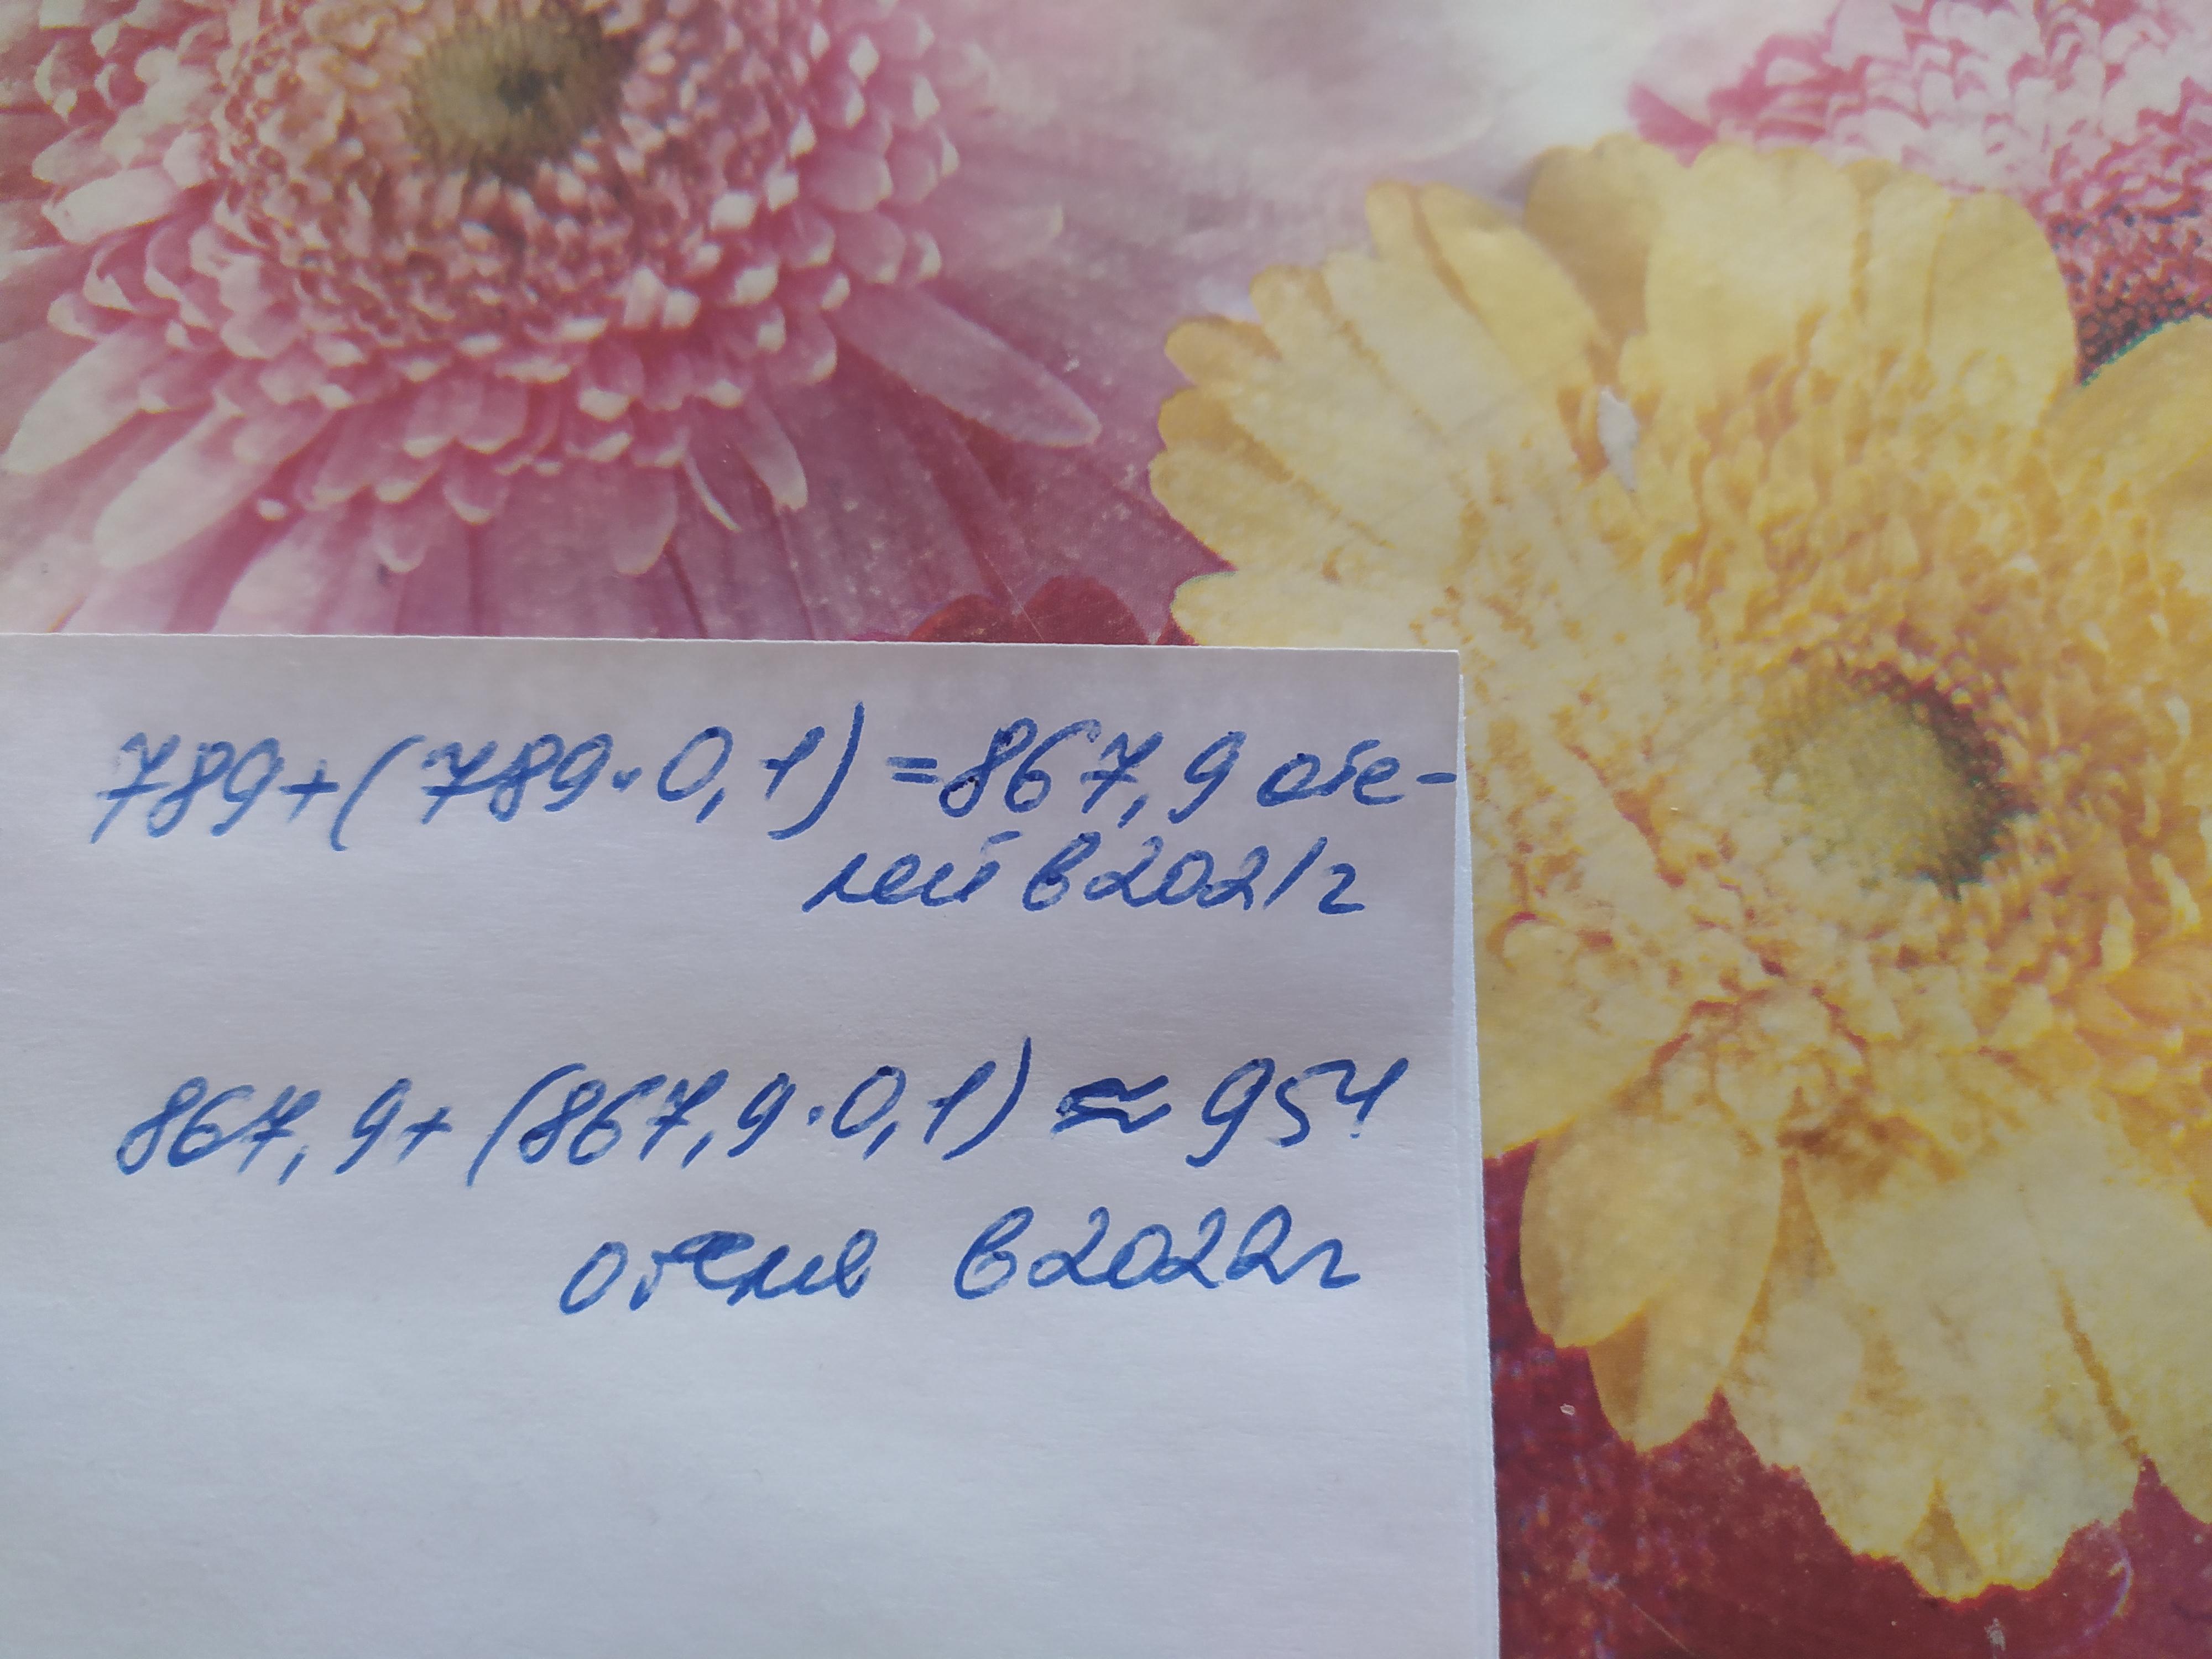 789+(789·0,1)=867,9 оте-
лей в 2021г
867,9+(867,9·0,1)≈954
отеля в 2022г